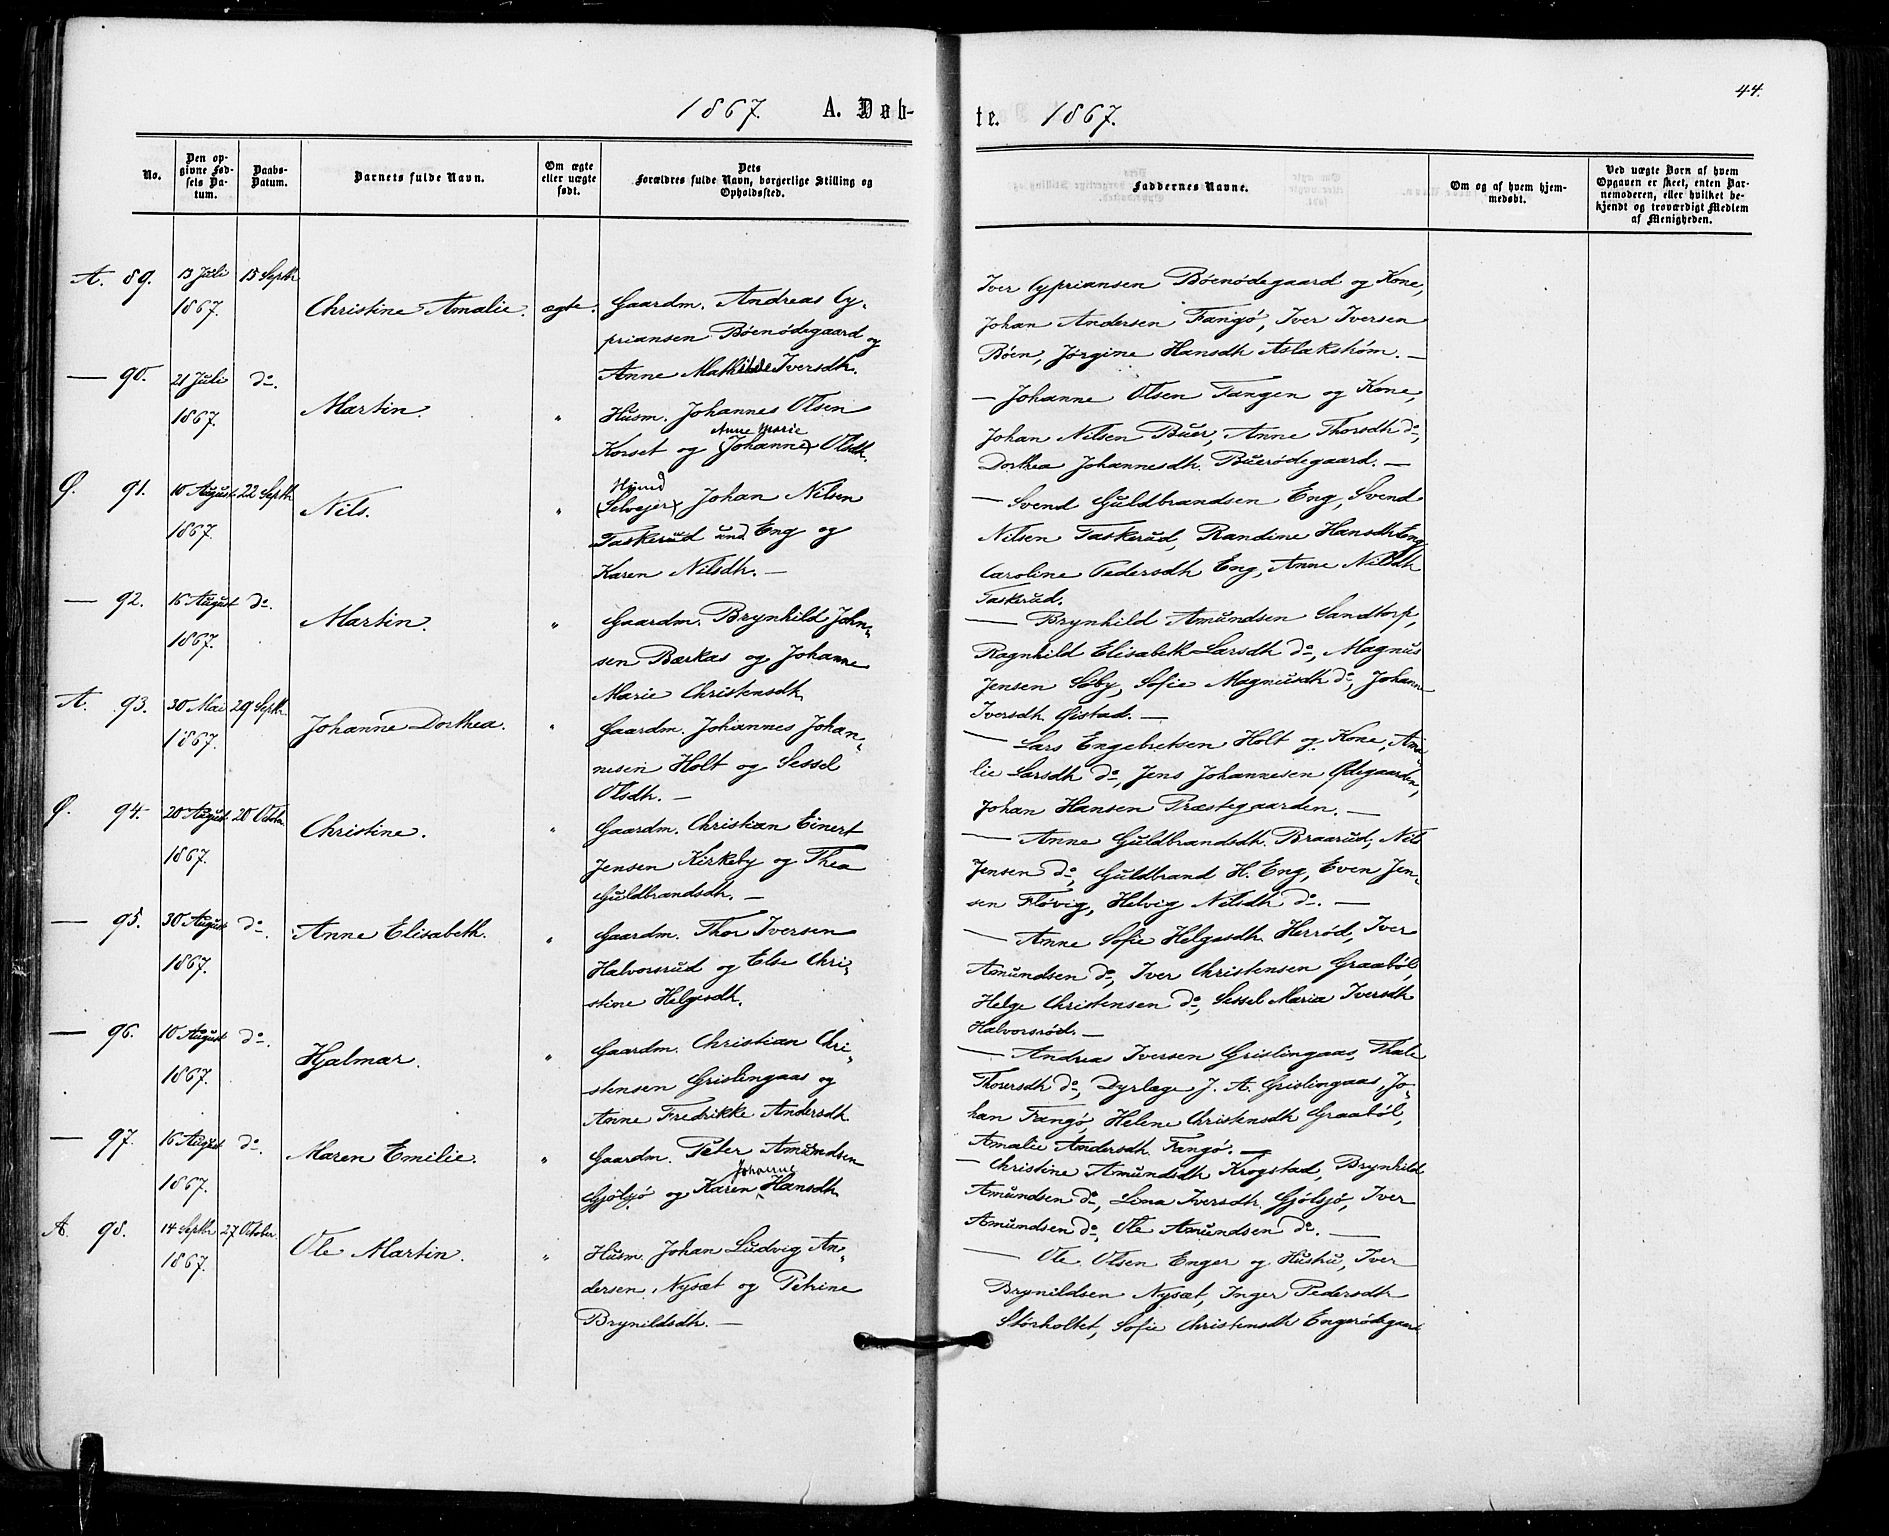 44.
1867. A. Døb-
te. 1867.
No.
Den op-
givne Fød-
sels Da-
tum.
Daabs-
Datum.
Barnets fulde Navn.
Om ægte
eller uægte
født.
Dets
Forældres fulde Navn, borgerlige Stilling og
Opholdssted.
Faddernes Navne.
Om og af hvem hjem-
medøbt.
Ved uægte Børn af hvem
Opgaven er skeet, enten Bar-
nemoderen, eller hvilket be-
kjendt og troværdigt Medlem
af Menigheden.
A. 89. 13 Juli 15 Septbr
1867. Christine Amalie. ægte. Gaardm. Andreas Cy-
priansen Böenödegaard og
Anne Mathilde Iversdh.
Iver Cypriansen Böenödegaard og Kone,
Johan Andersen Fangö, Iver Iversen
Böen, Jörgine Hansdh Aslakshöm. —
— 90. 21 Juli do.
1867. Martin. " Husm. Johannes Olsen
Anne Marie
Korset og (Johanne) Olsdh.
— Johanne Olsen Tangen og Kone,
Johan Nilsen Buer, Anne Thorsdh do,
Dorthea Johannesdh. Buerödegaard. —
Ø. 91. 10 August 22 Septbr
1867. Nils. "
Hjmd
(Selvejer) Johan Nilsen
Taskerud und Eng og
Karen Nilsdh. —
— Svend Guldbrandsen Eng, Svend
Nilsen Taskerud, Randine Hansdh Eng
Caroline Pedersdh Eng, Anne Nilsdh
Taskerud.
— 92. 16 August do.
1867. Martin. " Gaardm. Brynhild John-
sen Bærkas og Johanne
Marie Christensdh
— Brynhild Amundsen Sandtorp,
Ragnhild Elisabeth Larsdh do, Magnus
Jensen Söby, Sofie Magnusdh do, Johanne
Iversdh. Öistad. —
A. 93. 30 Mai 29 Septbr
1867. Johanne Dorthea. " Gaardm. Johannes Johan-
nesen Holt og Sessel
Olsdh. —
— Lars Engebretsen Holt og Kone, Ama-
lie Larsdh do, Jens Johannesen Ødegaarden,
Johan Hansen Præstegaarden. —
Ø. 94. 20 August 20 Octobr.
1867. Christine. " Gaardm. Christian Einert
Jensen Kirkeby og Thea
Guldbrandsdh. —
— Anne Guldbrandsdh. Braarud, Nils
Jensen do, Guldbrand H. Eng, Even Jen-
sen Flövig, Helvig Nilsdh do. —
— 95. 30 August do.
1867. Anne Elisabeth. " Gaardm. Thor Iversen
Halvorsrud og Else Chri-
stine Helgesdh.
— Anne Sofie Helgesdh. Herröd, Iver
Amundsen do, Iver Christensen Graaböl,
Helge Christensen do, Sessel Maria Iversdh
Halvorsröd. —
— 96. 10 August do.
1867. Hjalmar. " Gaardm. Christian Chri-
stensen Grislingaas og
Anne Fredrikke Andersdh
— Andreas Iversen Grislingaas, Thale
Thorersdh do, Dyrlæge J. A. Grislingaas, Jo-
han Fangö, Helene Christensdh Graaböl,
Amalie Andersdh. Fangö. —
— 97. 16 August do.
1867. Maren Emilie. " Gaardm. Peter Amundsen
Johanne
Gjölsjö og Karen Hansdh
— Christine Amundsdh Krogstad, Brynhild
Amundsen do, Lina Iversdh. Gjölsjö, Iver
Amundsen do, Ole Amundsen do. —
A. 98. 14 Septbr 27 October.
1867. Ole Martin. " Husm. Johan Ludvig An-
dersen Nysæt og Petrine
Brynildsdh. —
— Ole Olsen Enger og Hustru, Iver
Brynildsen Nysæt, Inger Pedersdh
Storholtet, Sofie Christensdh Engerödegaard